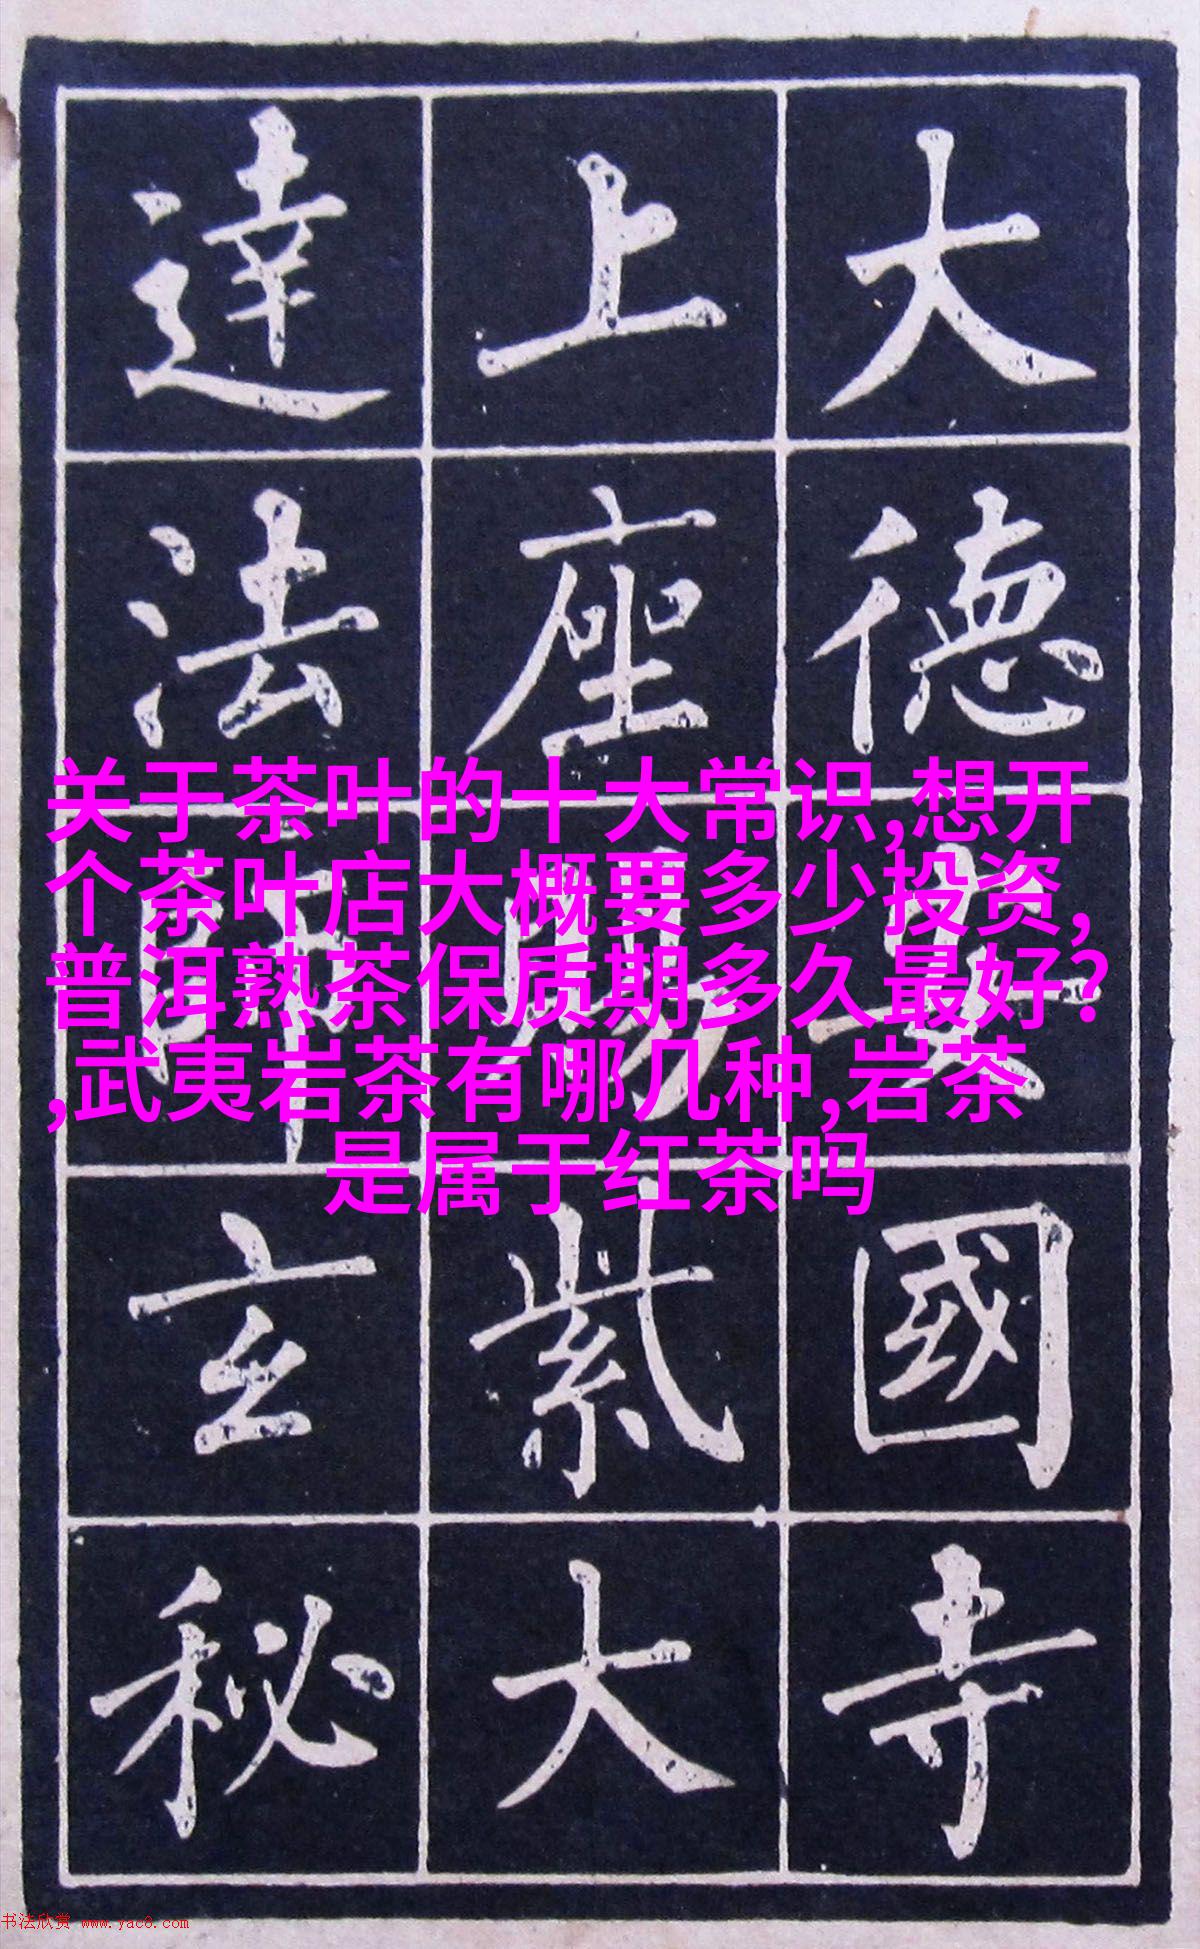 大德安國寺
上座賜紫大
達法師玄秘
关于茶叶的十大常识,想开
个茶叶店大概要多少投资,
普洱熟茶保质期多久最好?
,武夷岩茶有哪几种,岩茶
是属于红茶吗
书法欣赏 www.yac8.com